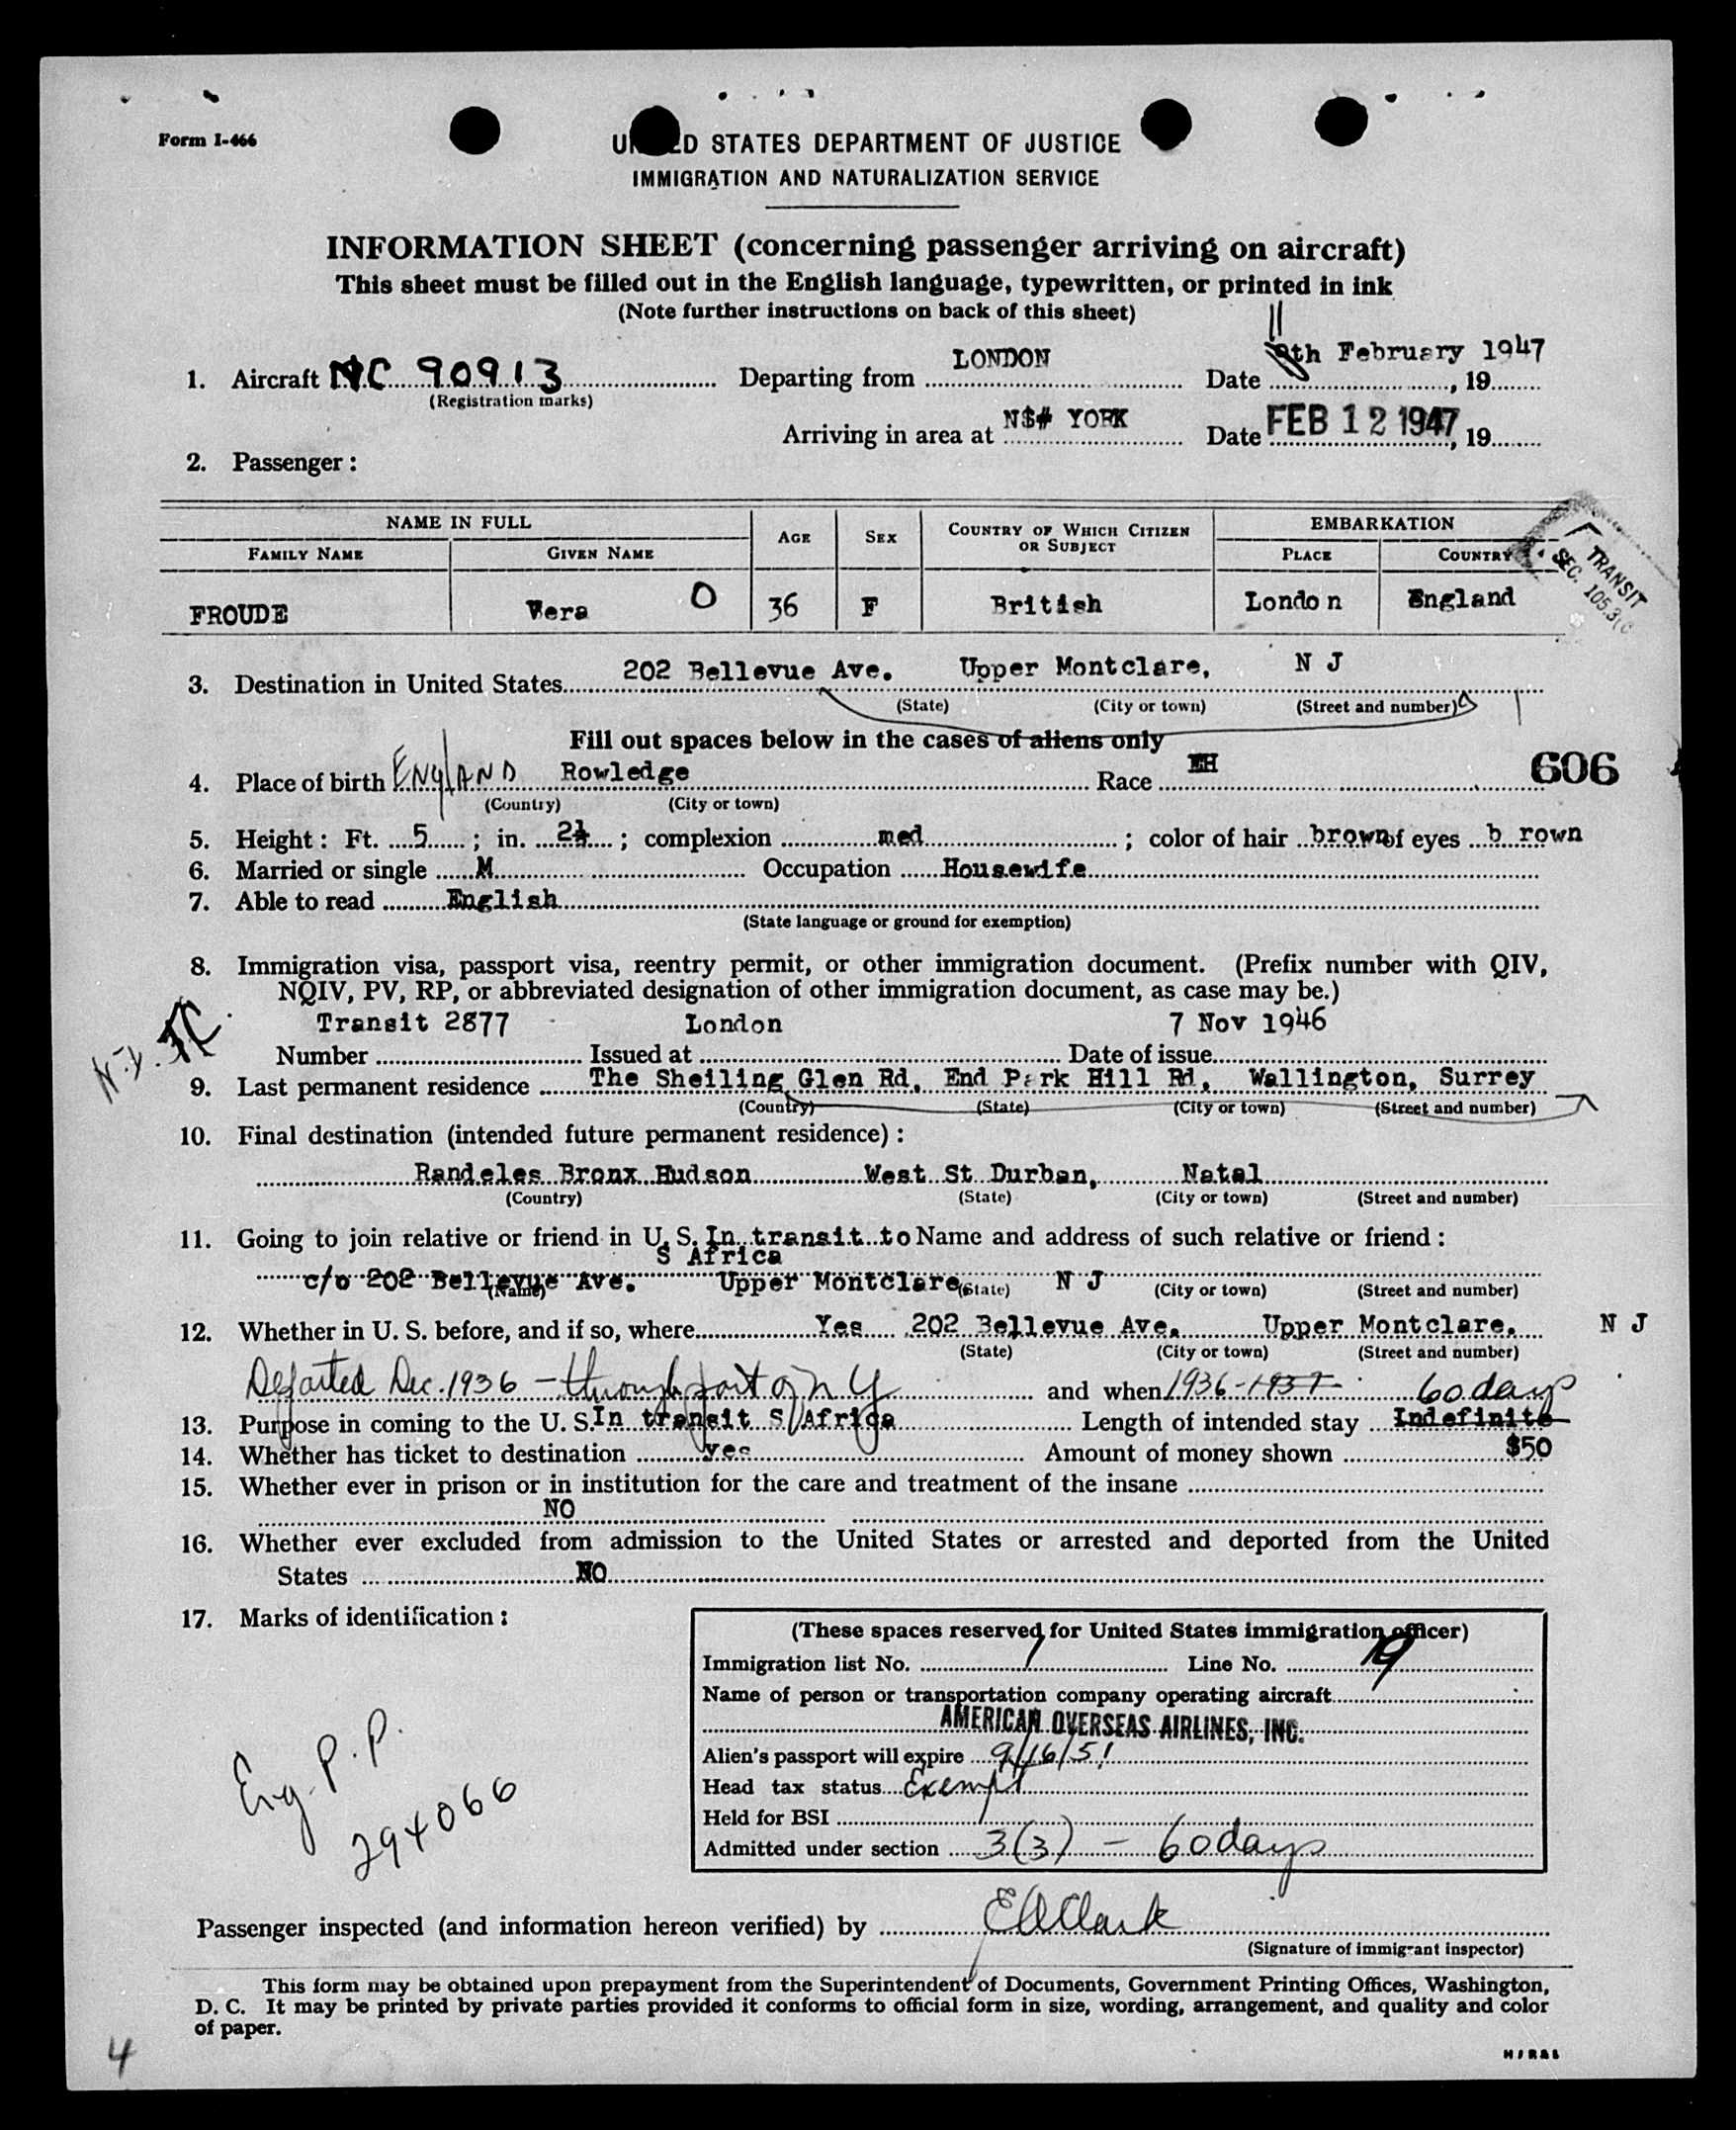 Form I-466
UNITED STATES DEPARTMENT OF JUSTICE
IMMIGRATION AND NATURALIZATION SERVICE
INFORMATION SHEET (concerning passenger arriving on aircraft)
This sheet must be filled out in the English language, typewritten, or printed in ink
(Note further instructions on back of this sheet)
11
1. Aircraft NC 90913 Departing from LONDON Date th February 1947, 19
(Registration marks)
Arriving in area at N$# YORK Date FEB 12 1947, 19
2. Passenger:
NAME IN FULL AGE SEX COUNTRY OF WHICH CITIZEN OR SUBJECT EMBARKATION
FAMILY NAME GIVEN NAME PLACE COUNTRY
TRANSIT
SEC. 105.3(c
FROUDE Vera O 36 F British London England
3. Destination in United States 202 Bellevue Ave. Upper Montclare, N J
(State) (City or town) (Street and number)
Fill out spaces below in the cases of aliens only
4. Place of birth ENGLAND Rowledge Race 606
(Country) (City or town)
5. Height: Ft. 5; in. 2½; complexion med; color of hair brown of eyes b rown
6. Married or single M Occupation Housewife
7. Able to read English
(State language or ground for exemption)
8. Immigration visa, passport visa, reentry permit, or other immigration document. (Prefix number with QIV,
NQIV, PV, RP, or abbreviated designation of other immigration document, as case may be.)
Transit 2877 London 7 Nov 1946
Number Issued at Date of issue
9. Last permanent residence The Sheiling Glen Rd, End Park Hill Rd, Wallington, Surrey
(Country) (State) (City or town) (Street and number)
10. Final destination (intended future permanent residence):
Randeles Bronx Hudson West St Durban, Natal
(Country) (State) (City or town) (Street and number)
11. Going to join relative or friend in U. S. In transit to Name and address of such relative or friend:
S Africa
c/o 202 Bellevue Ave. Upper Montclare N J
(Name) (State) (City or town) (Street and number)
12. Whether in U. S. before, and if so, where Yes 202 Bellevue Ave. Upper Montclare. N J
(State) (City or town) (Street and number)
Departed Dec. 1936 - through port of N Y and when 1936-1937 60 days
13. Purpose in coming to the U. S. In transit S Africa Length of intended stay Indefinite
14. Whether has ticket to destination yes Amount of money shown $50
15. Whether ever in prison or in institution for the care and treatment of the insane
NO
16. Whether ever excluded from admission to the United States or arrested and deported from the United
States NO
17. Marks of identification:
(These spaces reserved for United States immigration officer)
Immigration list No. 1 Line No. 19
Name of person or transportation company operating aircraft
AMERICAN OVERSEAS AIRLINES, INC.
Alien's passport will expire 9/16/51
Head tax status Exempt
Held for BSI
Admitted under section 3(3) - 60 days
Eng. P. P.
294066
Passenger inspected (and information hereon verified) by E A Clark
(Signature of immigrant inspector)
This form may be obtained upon prepayment from the Superintendent of Documents, Government Printing Offices, Washington,
D. C. It may be printed by private parties provided it conforms to official form in size, wording, arrangement, and quality and color
of paper.
4